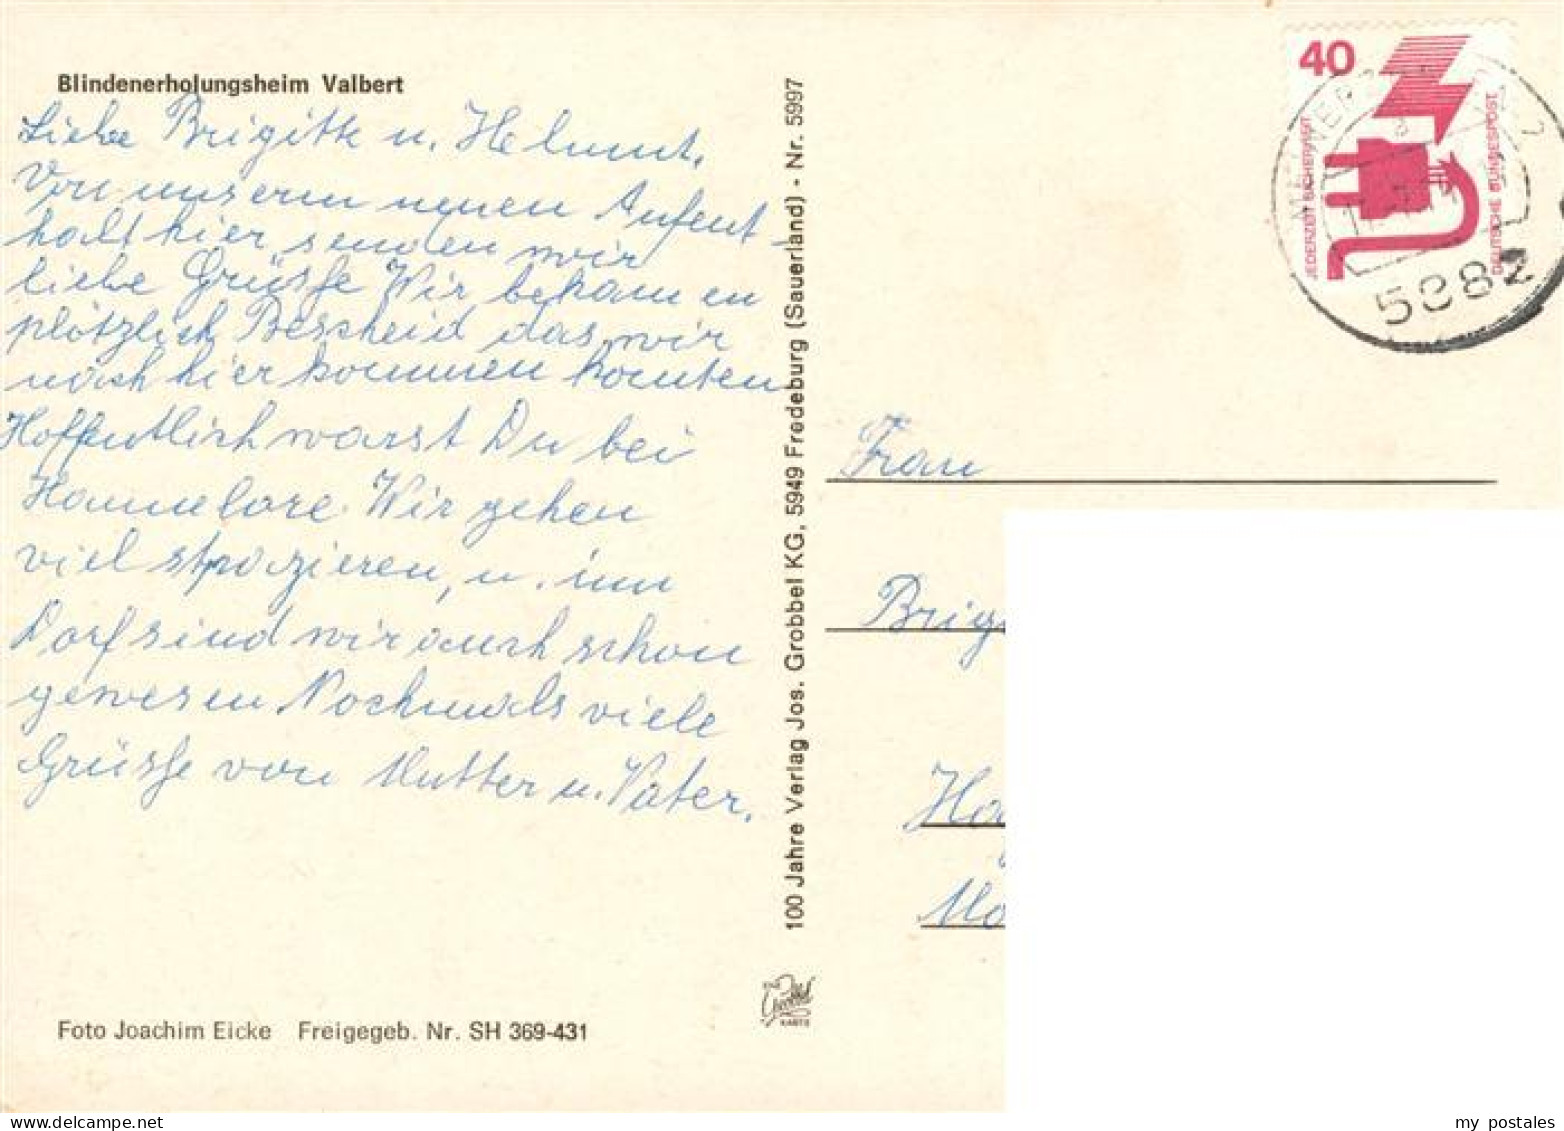 Blindenerholungsheim Valbert
Liebe Brigitte u. Helmut,
Von unserem neuen Aufent-
halt hier senden wir
liebe Grüsse Wir bekamen
plötzlich Bescheid das wir
nach hier kommen konnten
Hoffentlich warst Du bei
Hannelore. Wir gehen
viel spazieren, u. im
Dorf sind wir auch schon
gewesen Nochmals viele
Grüsse von Mutter u. Vater.
Foto Joachim Eicke Freigegeb. Nr. SH 369-431
100 Jahre Verlag Jos. Grobbel KG, 5949 Fredeburg (Sauerland) - Nr. 5997
Grobbel
KARTE
40
JEDERZEIT SICHERHEIT
DEUTSCHE BUNDESPOST
5882
Frau
Brig
Ho
Mo
my postales